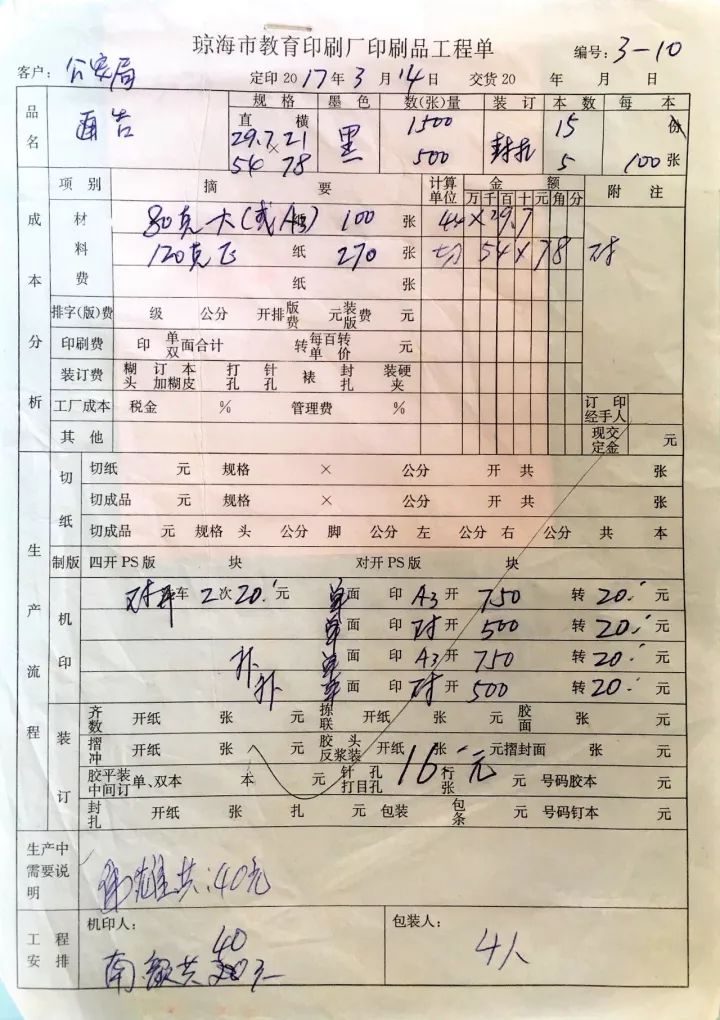 琼海市教育印刷厂印刷品工程单
编号：3-10
客户：公安局 定印2017年3月14日 交货20 年 月 日
品名 通告 规格 墨色 数(张)量 装订 本数 每本
直 横 黑 1500 封扎 15 份
29.7×21 500 5 100张
54 78
成本分析 项别 摘要 计算单位 金额 附注
万千百十元角分
材料费 80克大(或A3) 100张 44×29.7
120克飞 纸 270张 切 54×78 对
纸 张
排字(版)费 级 公分 开排版费 元装版费 元
印刷费 印单双面合计 转每百转单价 元
装订费 糊头 订本加糊皮 打孔 针孔 裱 封扎 装硬夹
工厂成本 税金 % 管理费 % 订印经手人
其他 现交定金 元
生产流程 切纸 切纸 元 规格 × 公分 开共 张
切成品 元 规格 × 公分 开共 张
切成品 元 规格 头 公分 脚 公分 左 公分 右 公分 共 本
制版 四开PS版 块 对开PS版 块
机印 对开车2次20.元 单面 印A3开 750 转20.元
单面 印对开 500 转20.元
补 单面 印A3开 750 转20.元
补 单面 印对开 500 转20.元
装订 齐数 开纸 张 元 拣联 开纸 张 元 胶面 张 元
摺冲 开纸 张 元 胶头反浆装 开纸 张 元 摺封面 张 元
胶平装中间订 单、双本 本 元 针孔打目孔 行张 元 号码胶本 元
16元
封扎 开纸 张 扎 元 包装 包条 元 号码钉本 元
生产中需要说明
雄共：40元
工程安排 机印人： 包装人：
40
南、 共 元 4人